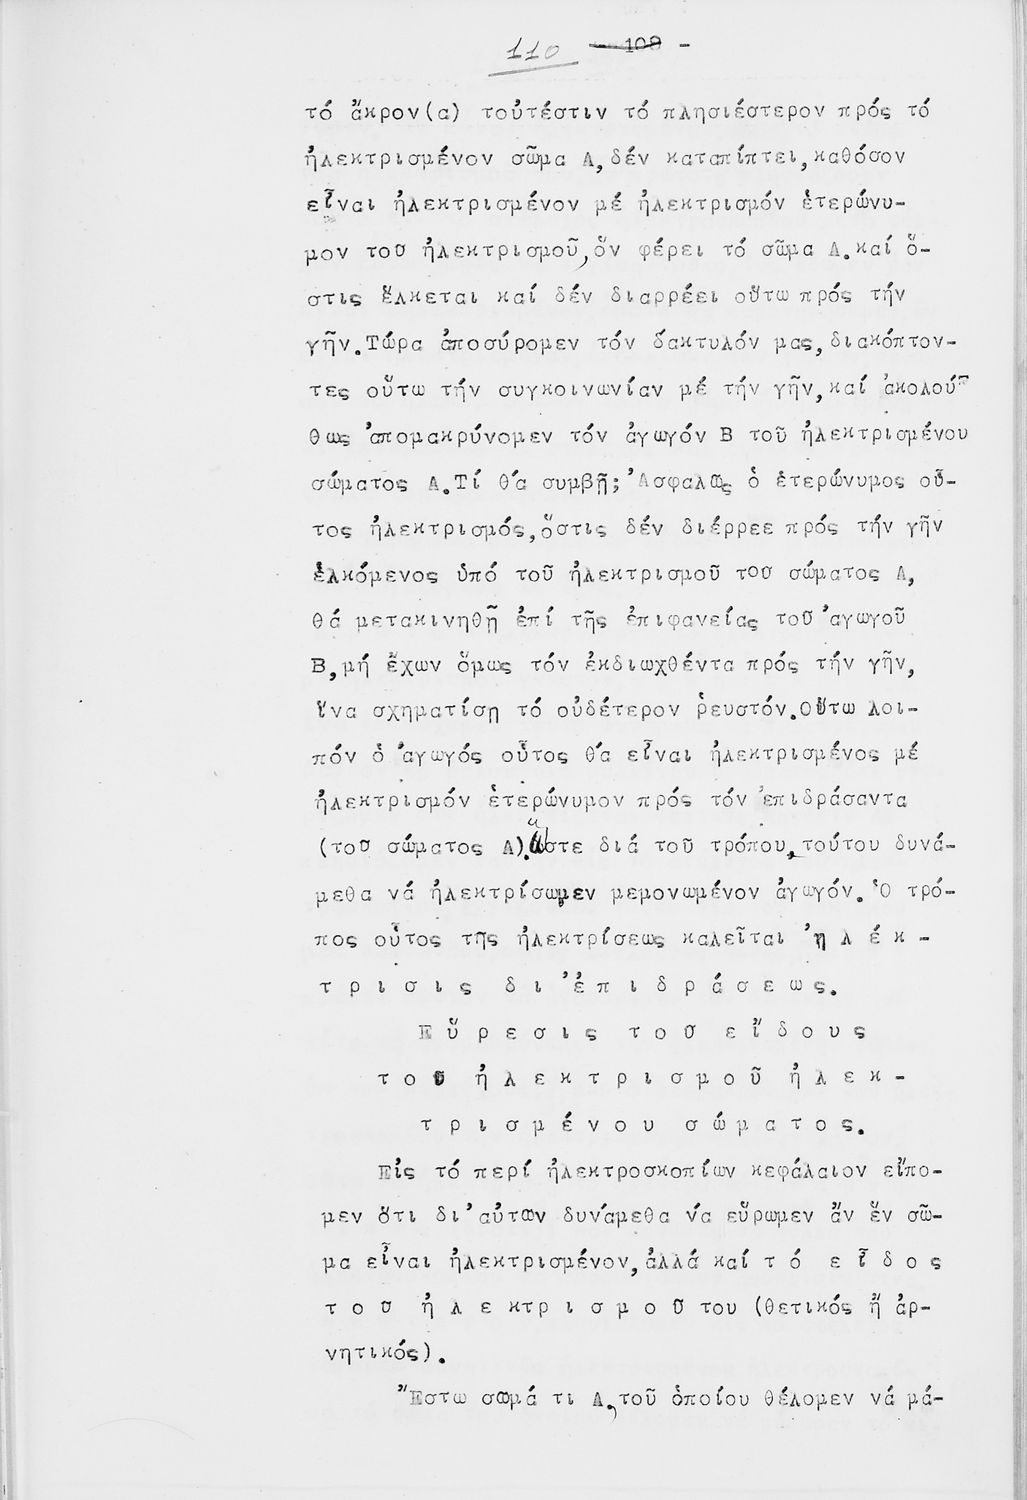 110 - 108 -
τό ἄκρον(α) τοὐτέστιν τό πλησιέστερον πρός τό
ἠλεκτρισμένον σῶμα Α, δέν καταπίπτει, καθόσον
εἶναι ἠλεκτρισμένον μέ ἠλεκτρισμόν ἑτερώνυ-
μον τοῦ ἠλεκτρισμοῦ, ὅν φέρει τό σῶμα Α. καί ὅ-
στις ἕλκεται καί δέν διαρρέει οὕτω πρός τήν
γῆν. Τώρα ἀποσύρομεν τόν δάκτυλόν μας, διακόπτον-
τες οὕτω τήν συγκοινωνίαν μέ τήν γῆν, καί ἀκολού-
θως ἀπομακρύνομεν τόν ἀγωγόν Β τοῦ ἠλεκτρισμένου
σώματος Α. Τί θά συμβῇ; Ἀσφαλῶς ὁ ἑτερώνυμος οὗ-
τος ἠλεκτρισμός, ὅστις δέν διέρρεε πρός τήν γῆν
ἑλκόμενος ὑπό τοῦ ἠλεκτρισμοῦ τοῦ σώματος Α,
θά μετακινηθῇ ἐπί τῆς ἐπιφανείας τοῦ ἀγωγοῦ
Β, μή ἔχων ὅμως τόν ἐκδιωχθέντα πρός τήν γῆν,
ἵνα σχηματίσῃ τό οὐδέτερον ῥευστόν. Οὕτω λοι-
πόν ὁ ἀγωγός οὗτος θά εἶναι ἠλεκτρισμένος μέ
ἠλεκτρισμόν ἑτερώνυμον πρός τόν ἐπιδράσαντα
(τοῦ σώματος Α). ὥστε διά τοῦ τρόπου, τούτου δυνά-
μεθα νά ἠλεκτρίσωμεν μεμονωμένον ἀγωγόν. Ὁ τρό-
πος οὗτος τῆς ἠλεκτρίσεως καλεῖται ἠ λ έ κ -
τ ρ ι σ ι ς δ ι ’ ἐ π ι δ ρ ά σ ε ω ς.
Ε ὕ ρ ε σ ι ς τ ο ῦ ε ἴ δ ο υ ς
τ ο ῦ ἠ λ ε κ τ ρ ι σ μ ο ῦ ἠ λ ε κ -
τ ρ ι σ μ έ ν ο υ σ ώ μ α τ ο ς.
Εἰς τό περί ἠλεκτροσκοπίων κεφάλαιον εἴπο-
μεν ὅτι δι’ αὐτῶν δυνάμεθα νά εὕρωμεν ἄν ἕν σῶ-
μα εἶναι ἠλεκτρισμένον, ἀλλά καί τ ό ε ἶ δ ο ς
τ ο ῦ ἠ λ ε κτρ ι σ μ ο ῦ του (θετικός ἤ ἀρ-
νητικός).
Ἔστω σῶμά τι Α, τοῦ ὁποίου θέλομεν νά μά-